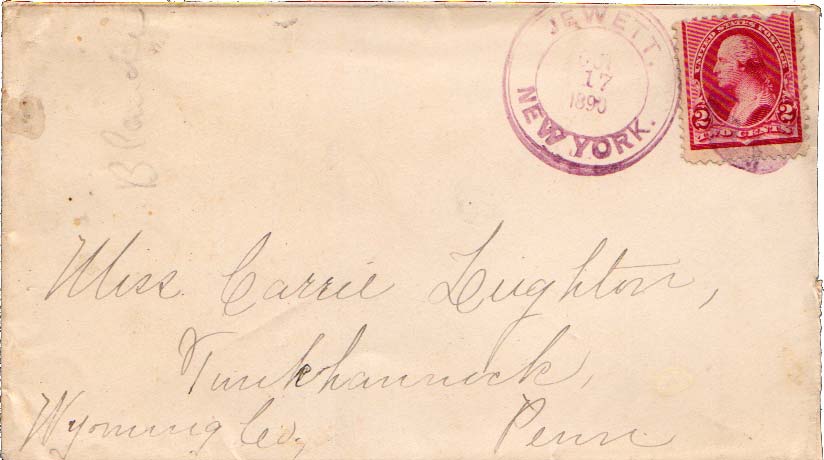 JEWETT.
17
1890
NEW YORK.
UNITED STATES POSTAGE
2 2
TWO CENTS
Blanche
Miss Carrie Leighton,
Tunkhannock,
Wyoming Co., Penn